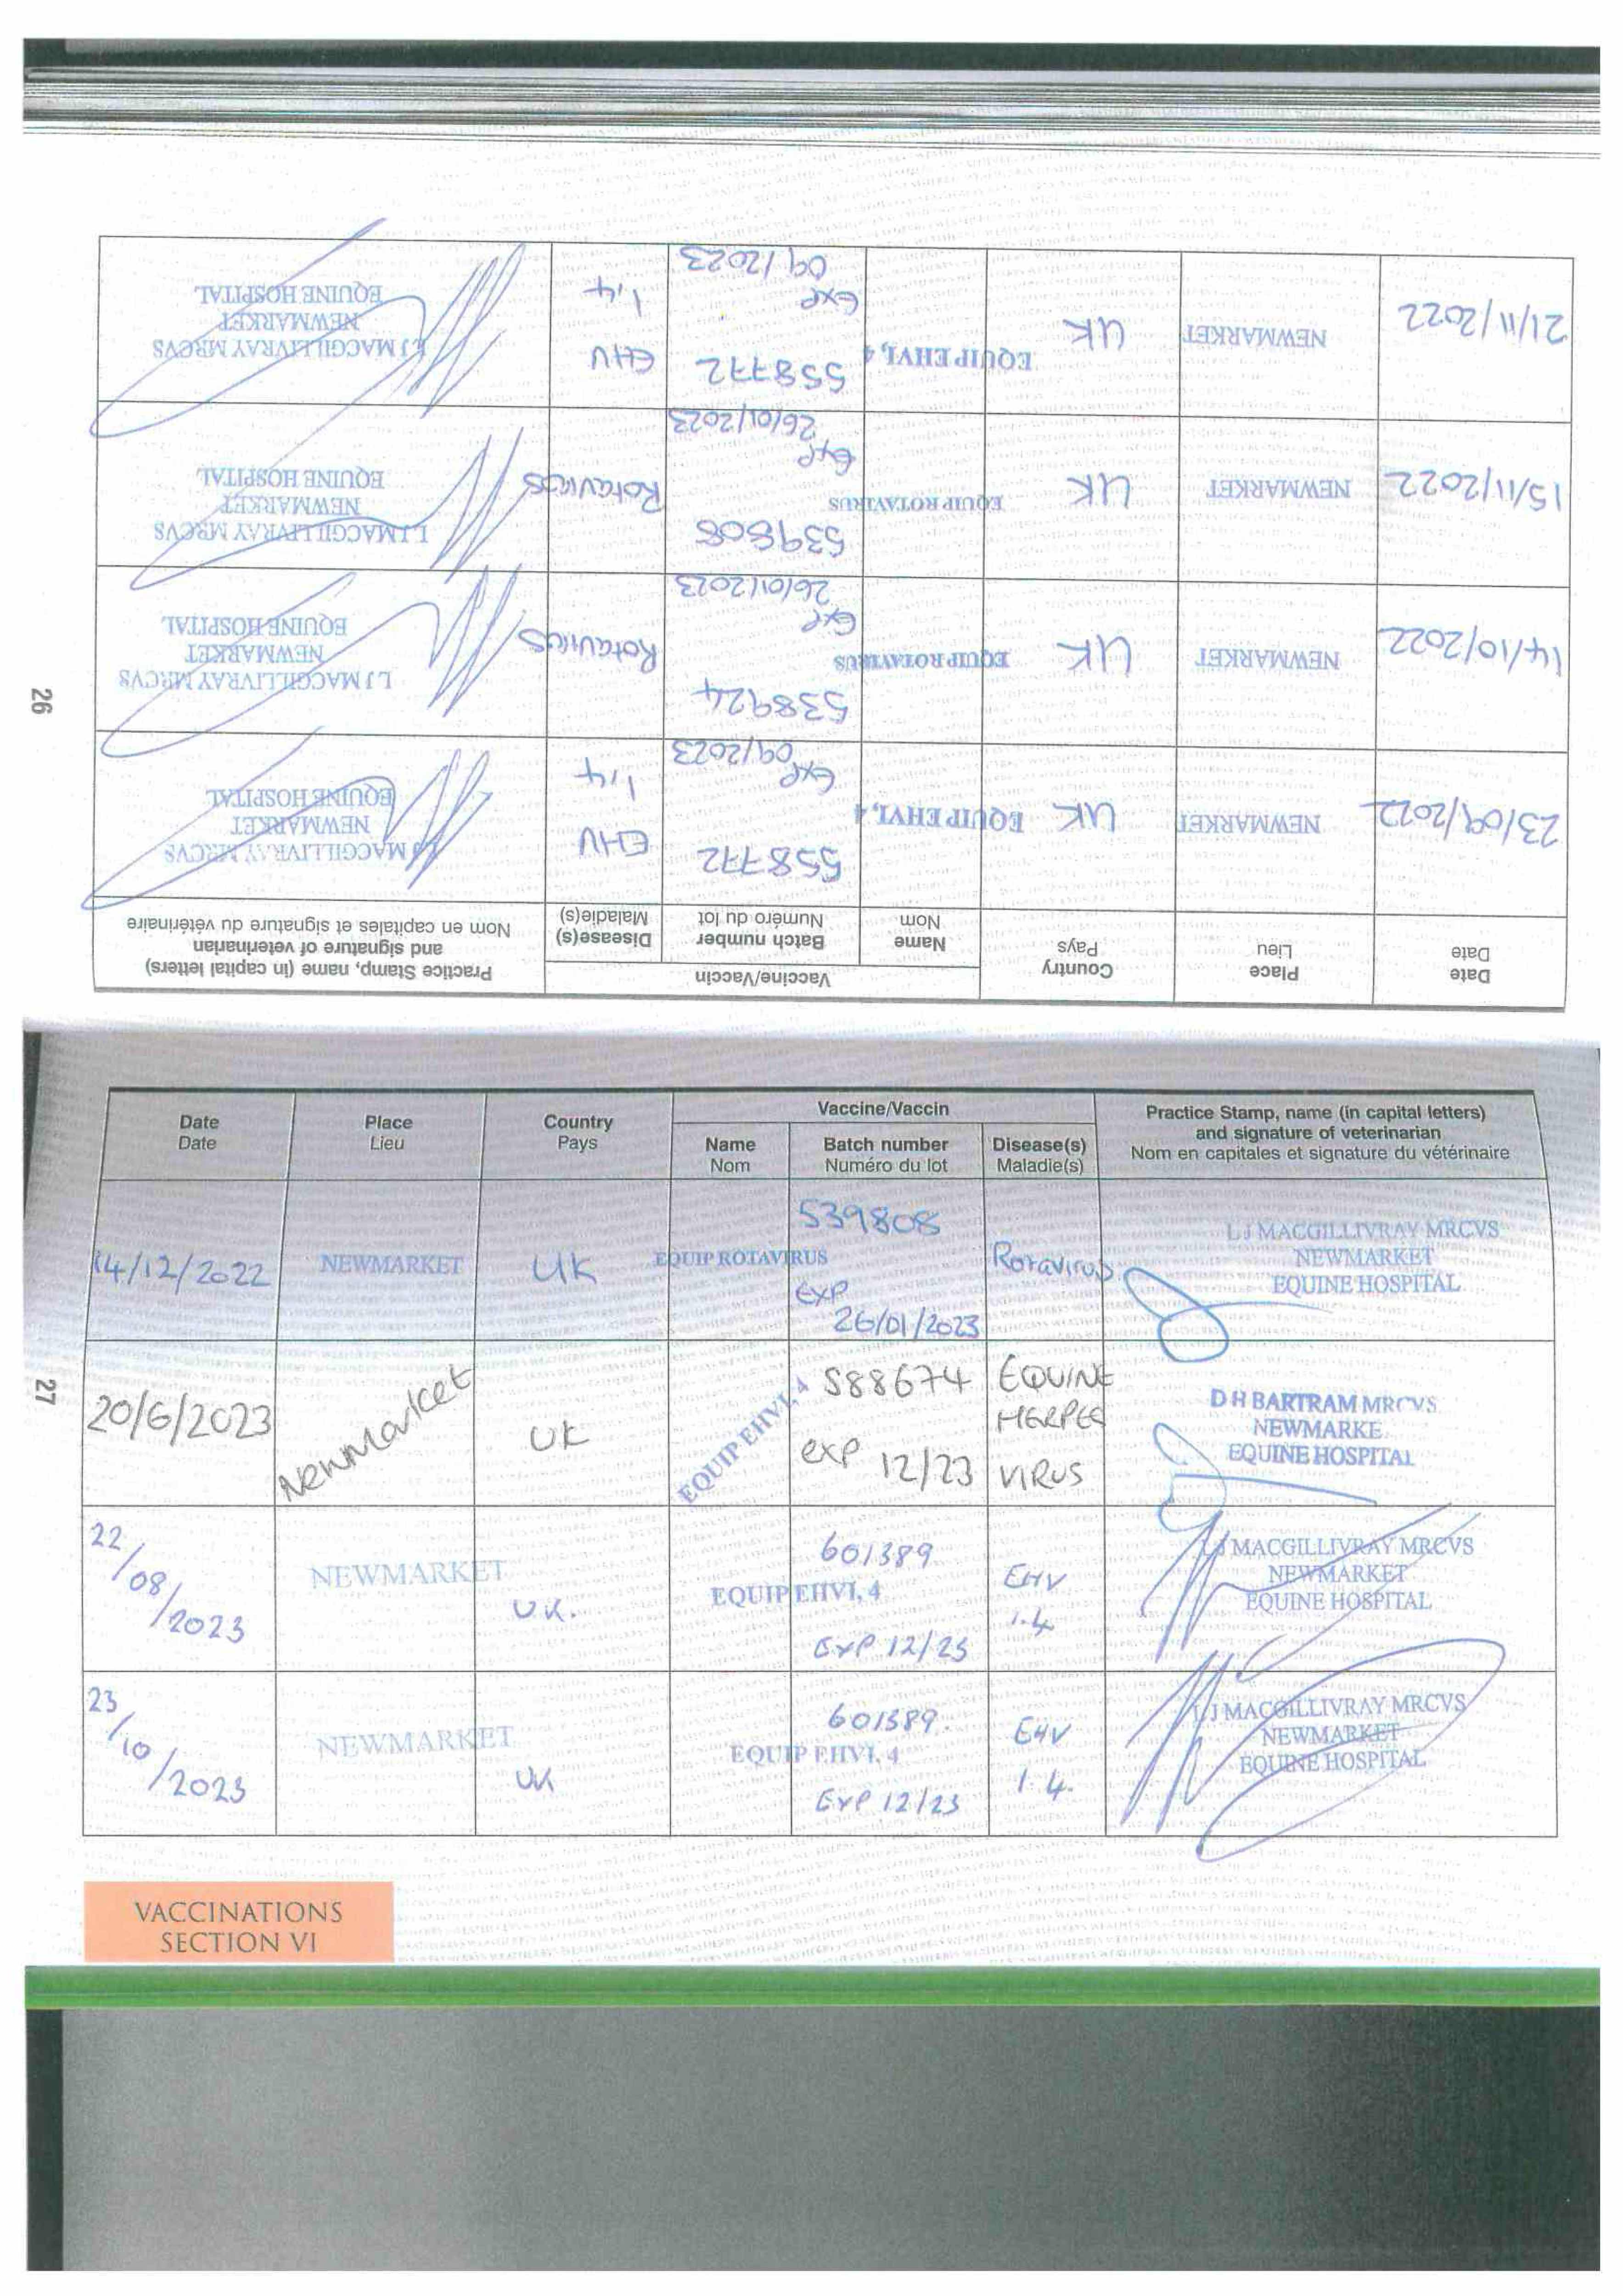 26
Date
Date
Place
Lieu
Country
Pays
Vaccine/Vaccin
Name
Nom
Batch number
Numéro du lot
Disease(s)
Maladie(s)
Practice Stamp, name (in capital letters)
and signature of veterinarian
Nom en capitales et signature du vétérinaire
23/09/2022
NEWMARKET
UK
EQUIP EHV1, 4
558772
Exp
09/2023
EHV
1,4
L J MACGILLIVRAY MRCVS
NEWMARKET
EQUINE HOSPITAL
14/10/2022
NEWMARKET
UK
EQUIP ROTAVIRUS
538924
Exp
26/01/2023
Rotavirus
L J MACGILLIVRAY MRCVS
NEWMARKET
EQUINE HOSPITAL
15/11/2022
NEWMARKET
UK
EQUIP ROTAVIRUS
539808
Exp
26/01/2023
Rotavirus
L J MACGILLIVRAY MRCVS
NEWMARKET
EQUINE HOSPITAL
21/11/2022
NEWMARKET
UK
EQUIP EHV1, 4
558772
Exp
09/2023
EHV
1,4
L J MACGILLIVRAY MRCVS
NEWMARKET
EQUINE HOSPITAL
27
Date
Date
Place
Lieu
Country
Pays
Vaccine/Vaccin
Name
Nom
Batch number
Numéro du lot
Disease(s)
Maladie(s)
Practice Stamp, name (in capital letters)
and signature of veterinarian
Nom en capitales et signature du vétérinaire
14/12/2022
NEWMARKET
UK
EQUIP ROTAVIRUS
539808
EXP
26/01/2023
Rotavirus
L J MACGILLIVRAY MRCVS
NEWMARKET
EQUINE HOSPITAL
20/6/2023
Newmarket
UK
EQUIP EHV1, 4
588674
exp 12/23
EQUINE
HERPES
VIRUS
D H BARTRAM MRCVS
NEWMARKE
EQUINE HOSPITAL
22/08/2023
NEWMARKET
UK.
EQUIP EHV1, 4
601389
EXP 12/23
EHV
1.4
L J MACGILLIVRAY MRCVS
NEWMARKET
EQUINE HOSPITAL
23/10/2023
NEWMARKET
UK
EQUIP EHV1, 4
601389.
EXP 12/23
EHV
1.4.
L J MACGILLIVRAY MRCVS
NEWMARKET
EQUINE HOSPITAL
VACCINATIONS
SECTION VI